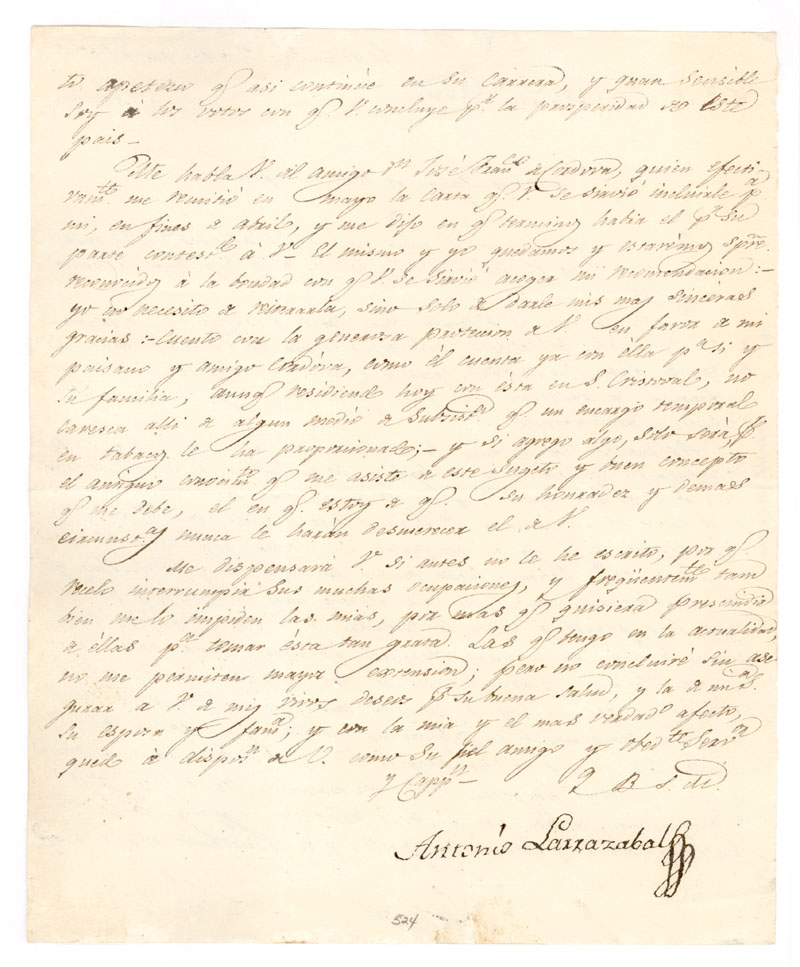 to apetezco q.e asi continúe en su carrera, y quan sensible
soy à los votos con q.e V. concluye p.r la prosperidad de este
pais -
Me habla V. del amigo D.n José Fran.co de Cordova, quien efecti
vam.te me remitió en mayo la carta q.e V. se sirvió incluirle p.a
mi, en fines de abril, y me dijo en q.e terminos habia el p.r su
parte contest.do à V. - El mismo y yo quedamos y estarémos spre.
reconocidos à la bondad con q.e V. se sirvió acoger mi recomendacion: -
yo no necesito de reiterarla, sino solo de darle mis mas sinceras
gracias: - Cuento con la generosa proteccion de V. en favor de mi
paisano y amigo Cordova, como él cuenta ya con ella p.a si y
su familia, aunq.e residiendo hoy con ésta en S. Cristoval, no
caresca alli de algun medio de subsist.a q.e un encargo temporal
en tabacos le ha proporcionado; - y si agrego algo, solo será, p.r
el antiguo conocim.to q.e me asiste de este sugeto y buen concepto
q.e me debe, el en q.e estoy de q.e su honradez y demas
circunst.as nunca le harán desmerecer el de V.
Me dispensará V. si antes no le he escrito, por q.e
recelo interrumpir sus muchas ocupaciones, y freqüentem.te tam
bien me lo impiden las mias, por mas q.e quisiera prescindir
de éllas p.a tomar ésta tan grata. Las q.e tengo en la actualidad,
no me permiten mayor extension; pero no concluiré sin ase
gurar a V. de mis vivos deseos p.r su buena salud, y la de mi s.a
su esposa y fam.a; y con la mia y el mas verdad.o afecto,
quedo à dispos.n de V. como su fiel amigo y obed.te serv.or
y Capp.n Q B S M.
Antonio Larrazabal
524